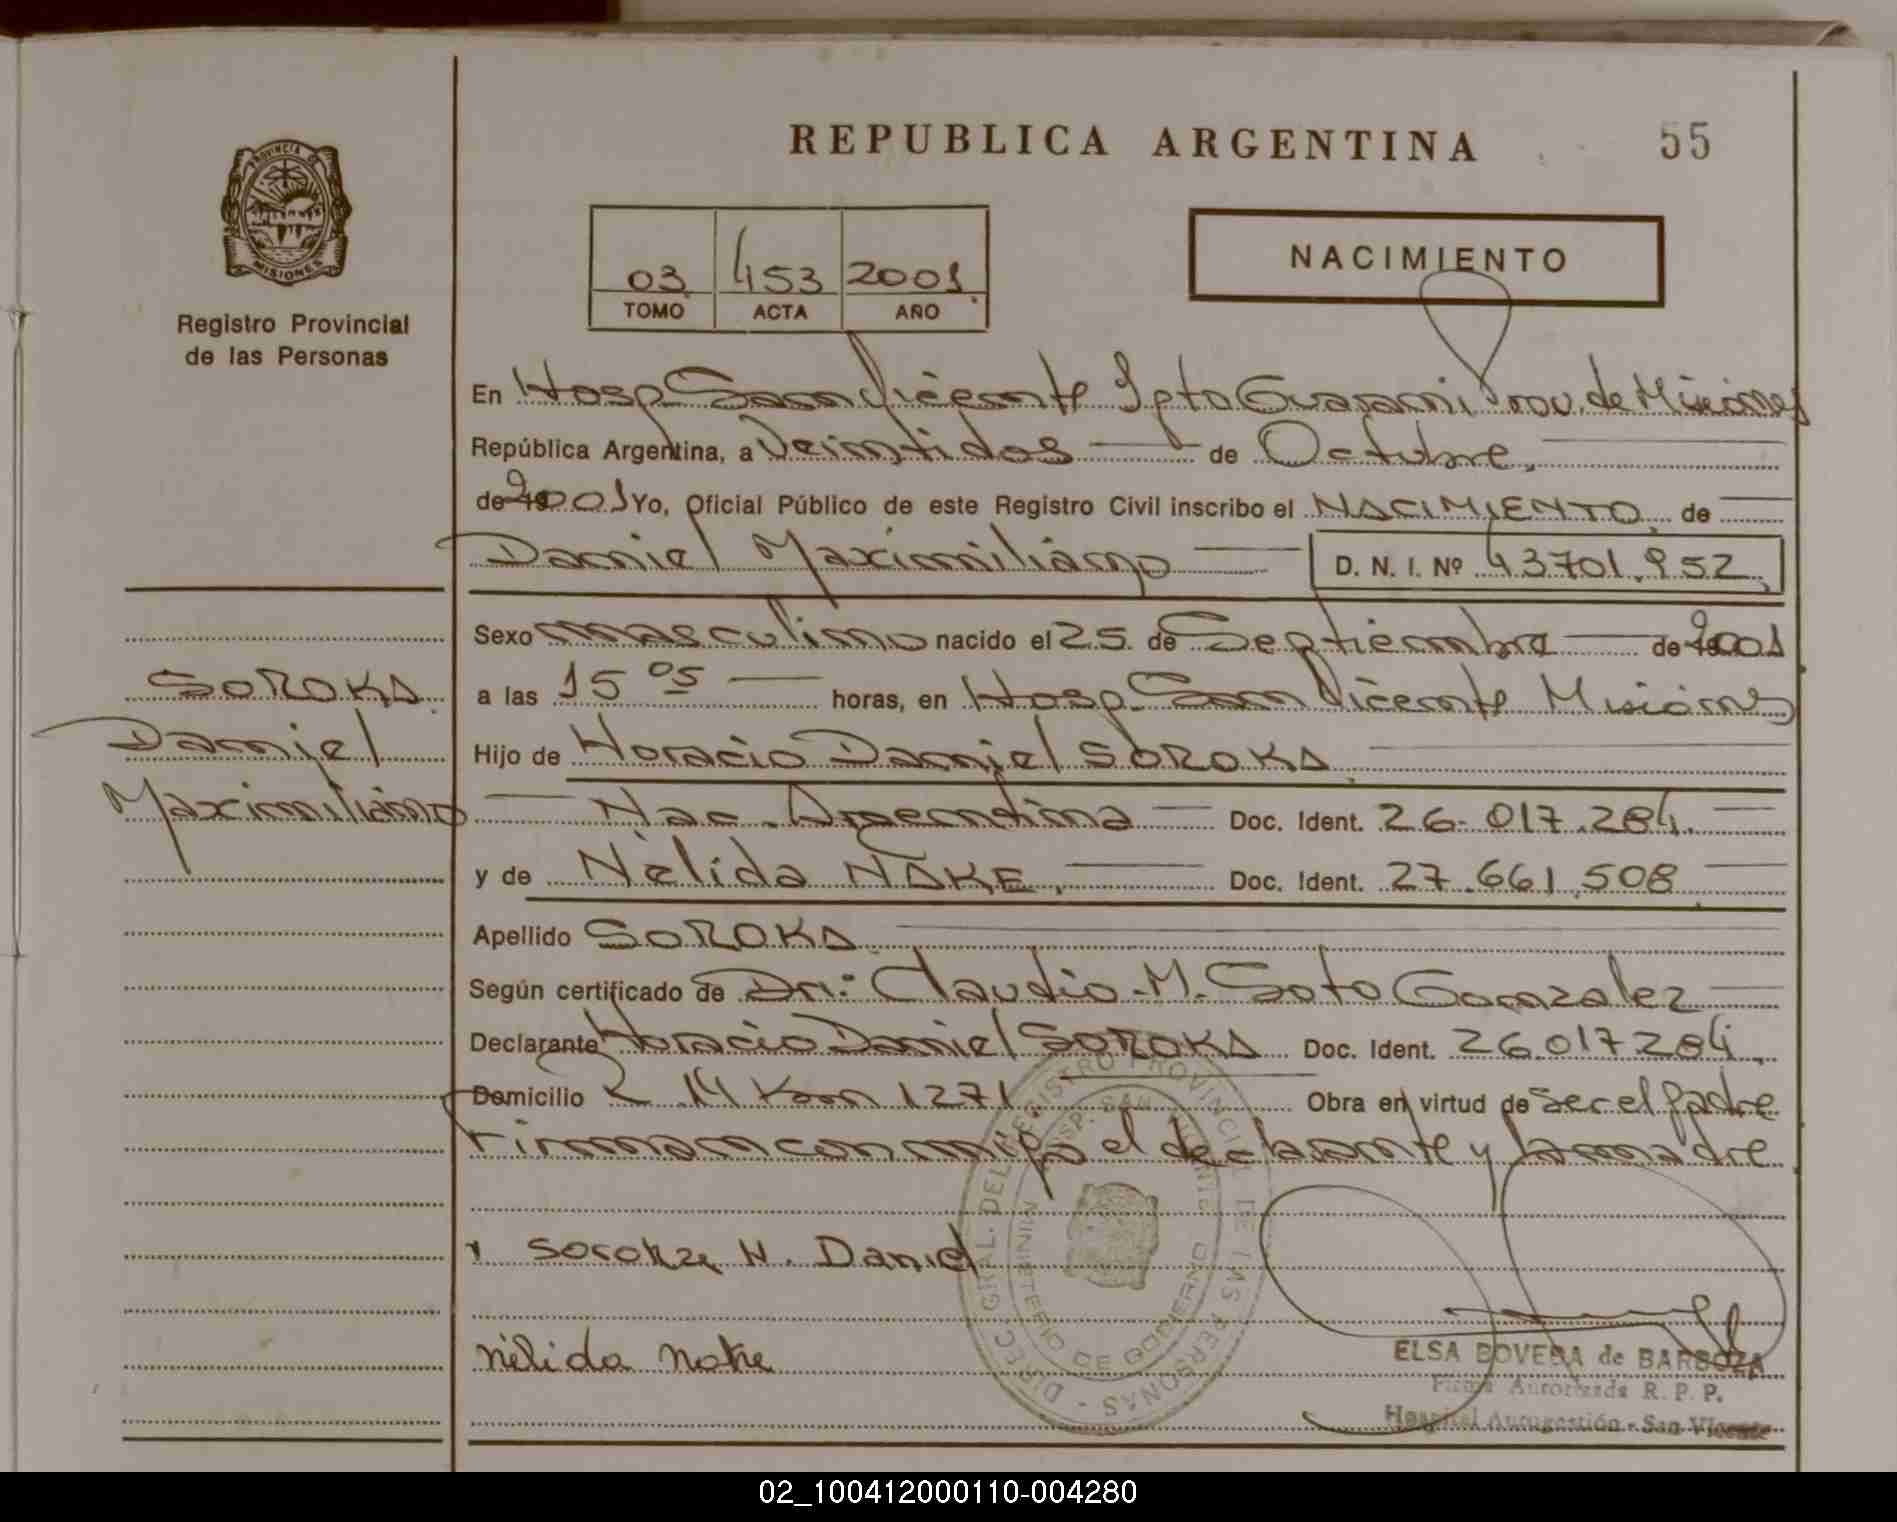 REPUBLICA ARGENTINA
55
PROVINCIA DE
MISIONES
Registro Provincial
de las Personas
03 453 2001
TOMO ACTA AÑO
NACIMIENTO
En Hosp San Vicente Dpto Guarani Prov. de Misiones
República Argentina, a Veintidos de Octubre,
de 2001 Yo, Oficial Público de este Registro Civil inscribo el NACIMIENTO, de
Daniel Maximiliano D. N. I. Nº 43701.952
Sexo masculino nacido el 25 de Septiembre de 2001
SOROKA
Daniel
Maximiliano
a las 15 05 horas, en Hosp. San Vicente Misiones
Hijo de Horacio Daniel SOROKA
Nac. Argentina Doc. Ident. 26.017.284
y de Nélida NAKE, Doc. Ident. 27.661.508
Apellido SOROKA
Según certificado de Dr: Claudio M. Soto Gonzalez
Declarante Horacio Daniel SOROKA Doc. Ident. 26.017.284
Domicilio R 14 Km 1271. Obra en virtud de ser el padre
Firman conmigo el declarante y la madre
DIREC. GRAL. DEL REGISTRO PROVINCIAL DE LAS PERSONAS
HOSP. SAN VICENTE
MINISTERIO DE GOBIERNO
Soroka H. Daniel
nélida nake
ELSA BOVERA de BARBOZA
Firma Autorizada R. P. P.
Hospital Autogestión - San Vicente
02_100412000110-004280